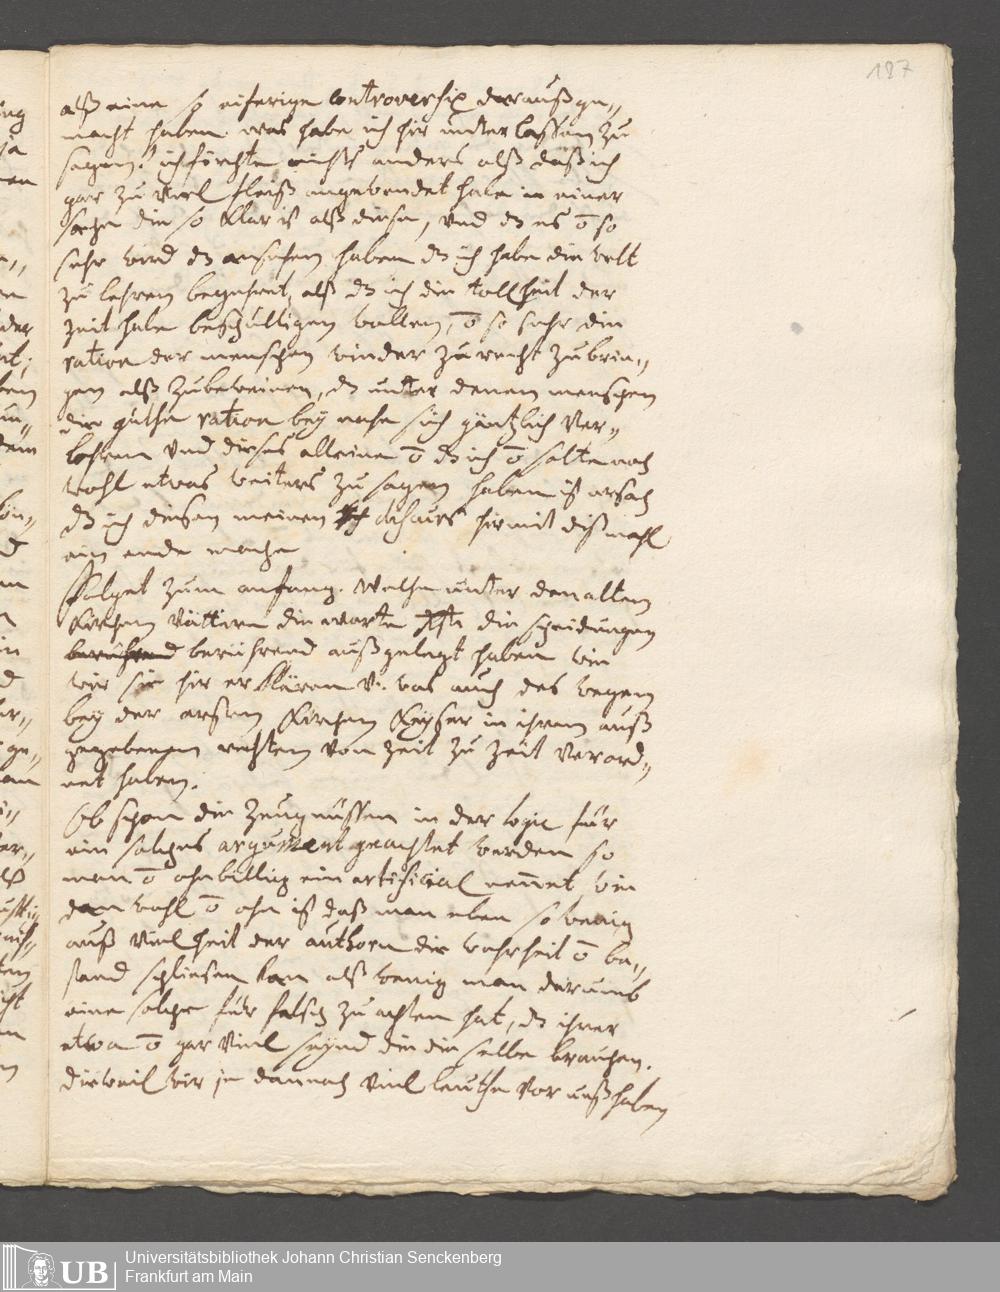 187
alß eine so eiferige controversix darauß ge„
macht haben. was habe ich hir unterlassen zu
sagen? ich förchte nichts anders alß daß ich
gar zu viel fleiß angewendet habe in einer
sache die so klar ist alß diese, und dz es o so
sehr wird dz ansehen haben dz ich habe die welt
zu lehren begehret, alß dz ich die tollheit der
zeit habe beschultigen wollen, o so sehr die
ration der menschen wieder zu recht zu brin„
gen alß zubeweinen, dz unter denen menschen
die guthe ration bey nahe sich gäntzlich ver„
lohren und dieses alleine o dz ich o solte noch
wohl etwas weiters zu sagen haben ist ursach
dz ich diesem meinen dehaurs hirmit dißmahl
ein ende mache
Folget zum anfang. Welche unter den alten
Kirchen Vättern die worte die scheidungen
berührend berührend außgelegt haben wie
wir sie hir erklären v. was auch des wegen
bey der ersten Kirchen Keyser in ihren auß
gegebenen rechten von zeit zu zeit verord„
net haben.
Ob schon die Zeugnüssen in der logic für
ein solches argument geachtet werden so
man o ohnbillig ein artificial nennet wie
dan wohl o ohn ist daß man eben so wenig
auß vielheit der authorn die wahrheit o be„
stand schliesen kan alß wenig man darumb
eine solche für falsch zu achten hat, dz ihrer
etwa o gar viel seynd die die selbe brauchen.
dieweil wir je dannoch viel leuthe vor unß haben
UB
Universitätsbibliothek Johann Christian Senckenberg
Frankfurt am Main